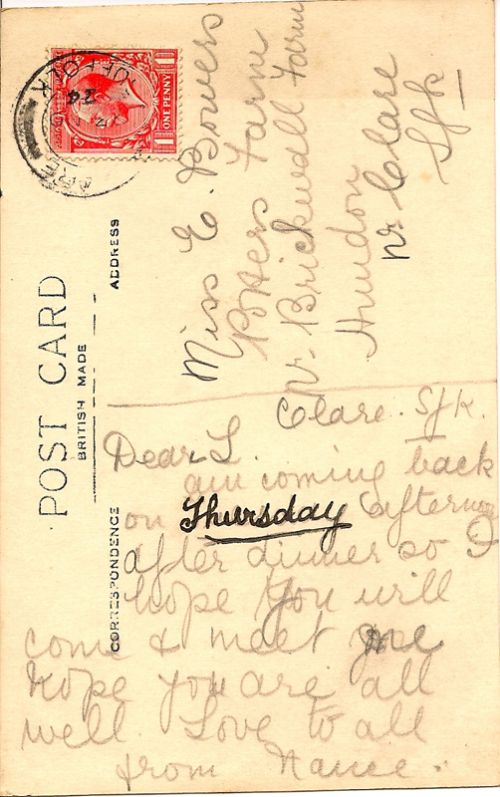 POST CARD
BRITISH MADE
ADDRESS
CORRESPONDENCE
ONE PENNY
SUFFOLK
24
Miss E. Bowers
Potters Farm
Nr Brickwall Farm
Hundon
Nr Clare
Sfk
Clare. Sfk.
Dear L.
am coming back
on Thursday afternoon
after dinner so I
hope you will
come & meet me
hope you are all
well. Love to all
from Nance.